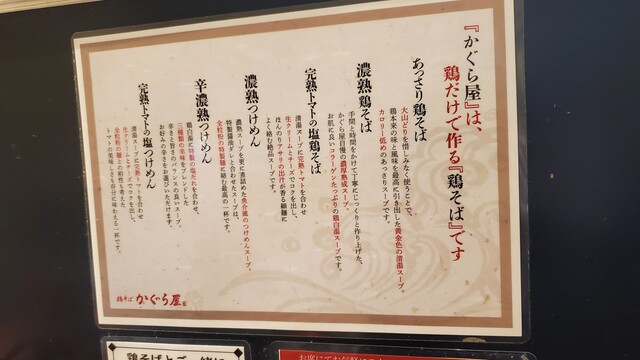 『かぐら屋』は、
鶏だけで作る『鶏そば』です
あっさり鶏そば
大山どりを惜しみなく使うことで、
鶏本来の味と風味を最高に引き出した黄金色の清湯スープ。
カロリー低めのあっさりスープです。
濃熟鶏そば
手間と時間をかけて丁寧にじっくりと作り上げた、
かぐら屋自慢の濃厚熟成スープ。
お肌に良いコラーゲンたっぷりの鶏白湯スープです。
完熟トマトの塩鶏そば
清湯スープに完熟トマトを合わせ
生クリームとチーズでコクを出し、
ほんのりアサリの出汁が香る細麺に
よく絡む絶品スープです。
濃熟つけめん
濃熟スープを更に煮詰めた魚介風のつけめんスープ。
特製醤油ダレと合わせたスープは、
全粒粉の特製麺に絡む最高の一杯です。
辛濃熟つけめん
鶏白湯に特製の塩だれを合わせ、
三種類の薬味をブレンドした
辛さと旨さのバランスの良いスープ。
お好みの辛さをお選びいただけます。
完熟トマトの塩つけめん
清湯スープに完熟トマトを合わせ
生クリームとチーズでコクを出し、
全粒粉の麺との相性も考えた
トマトの美味しさも存分に味わえる一杯です。
鶏そば かぐら屋
鶏そばとご一緒に